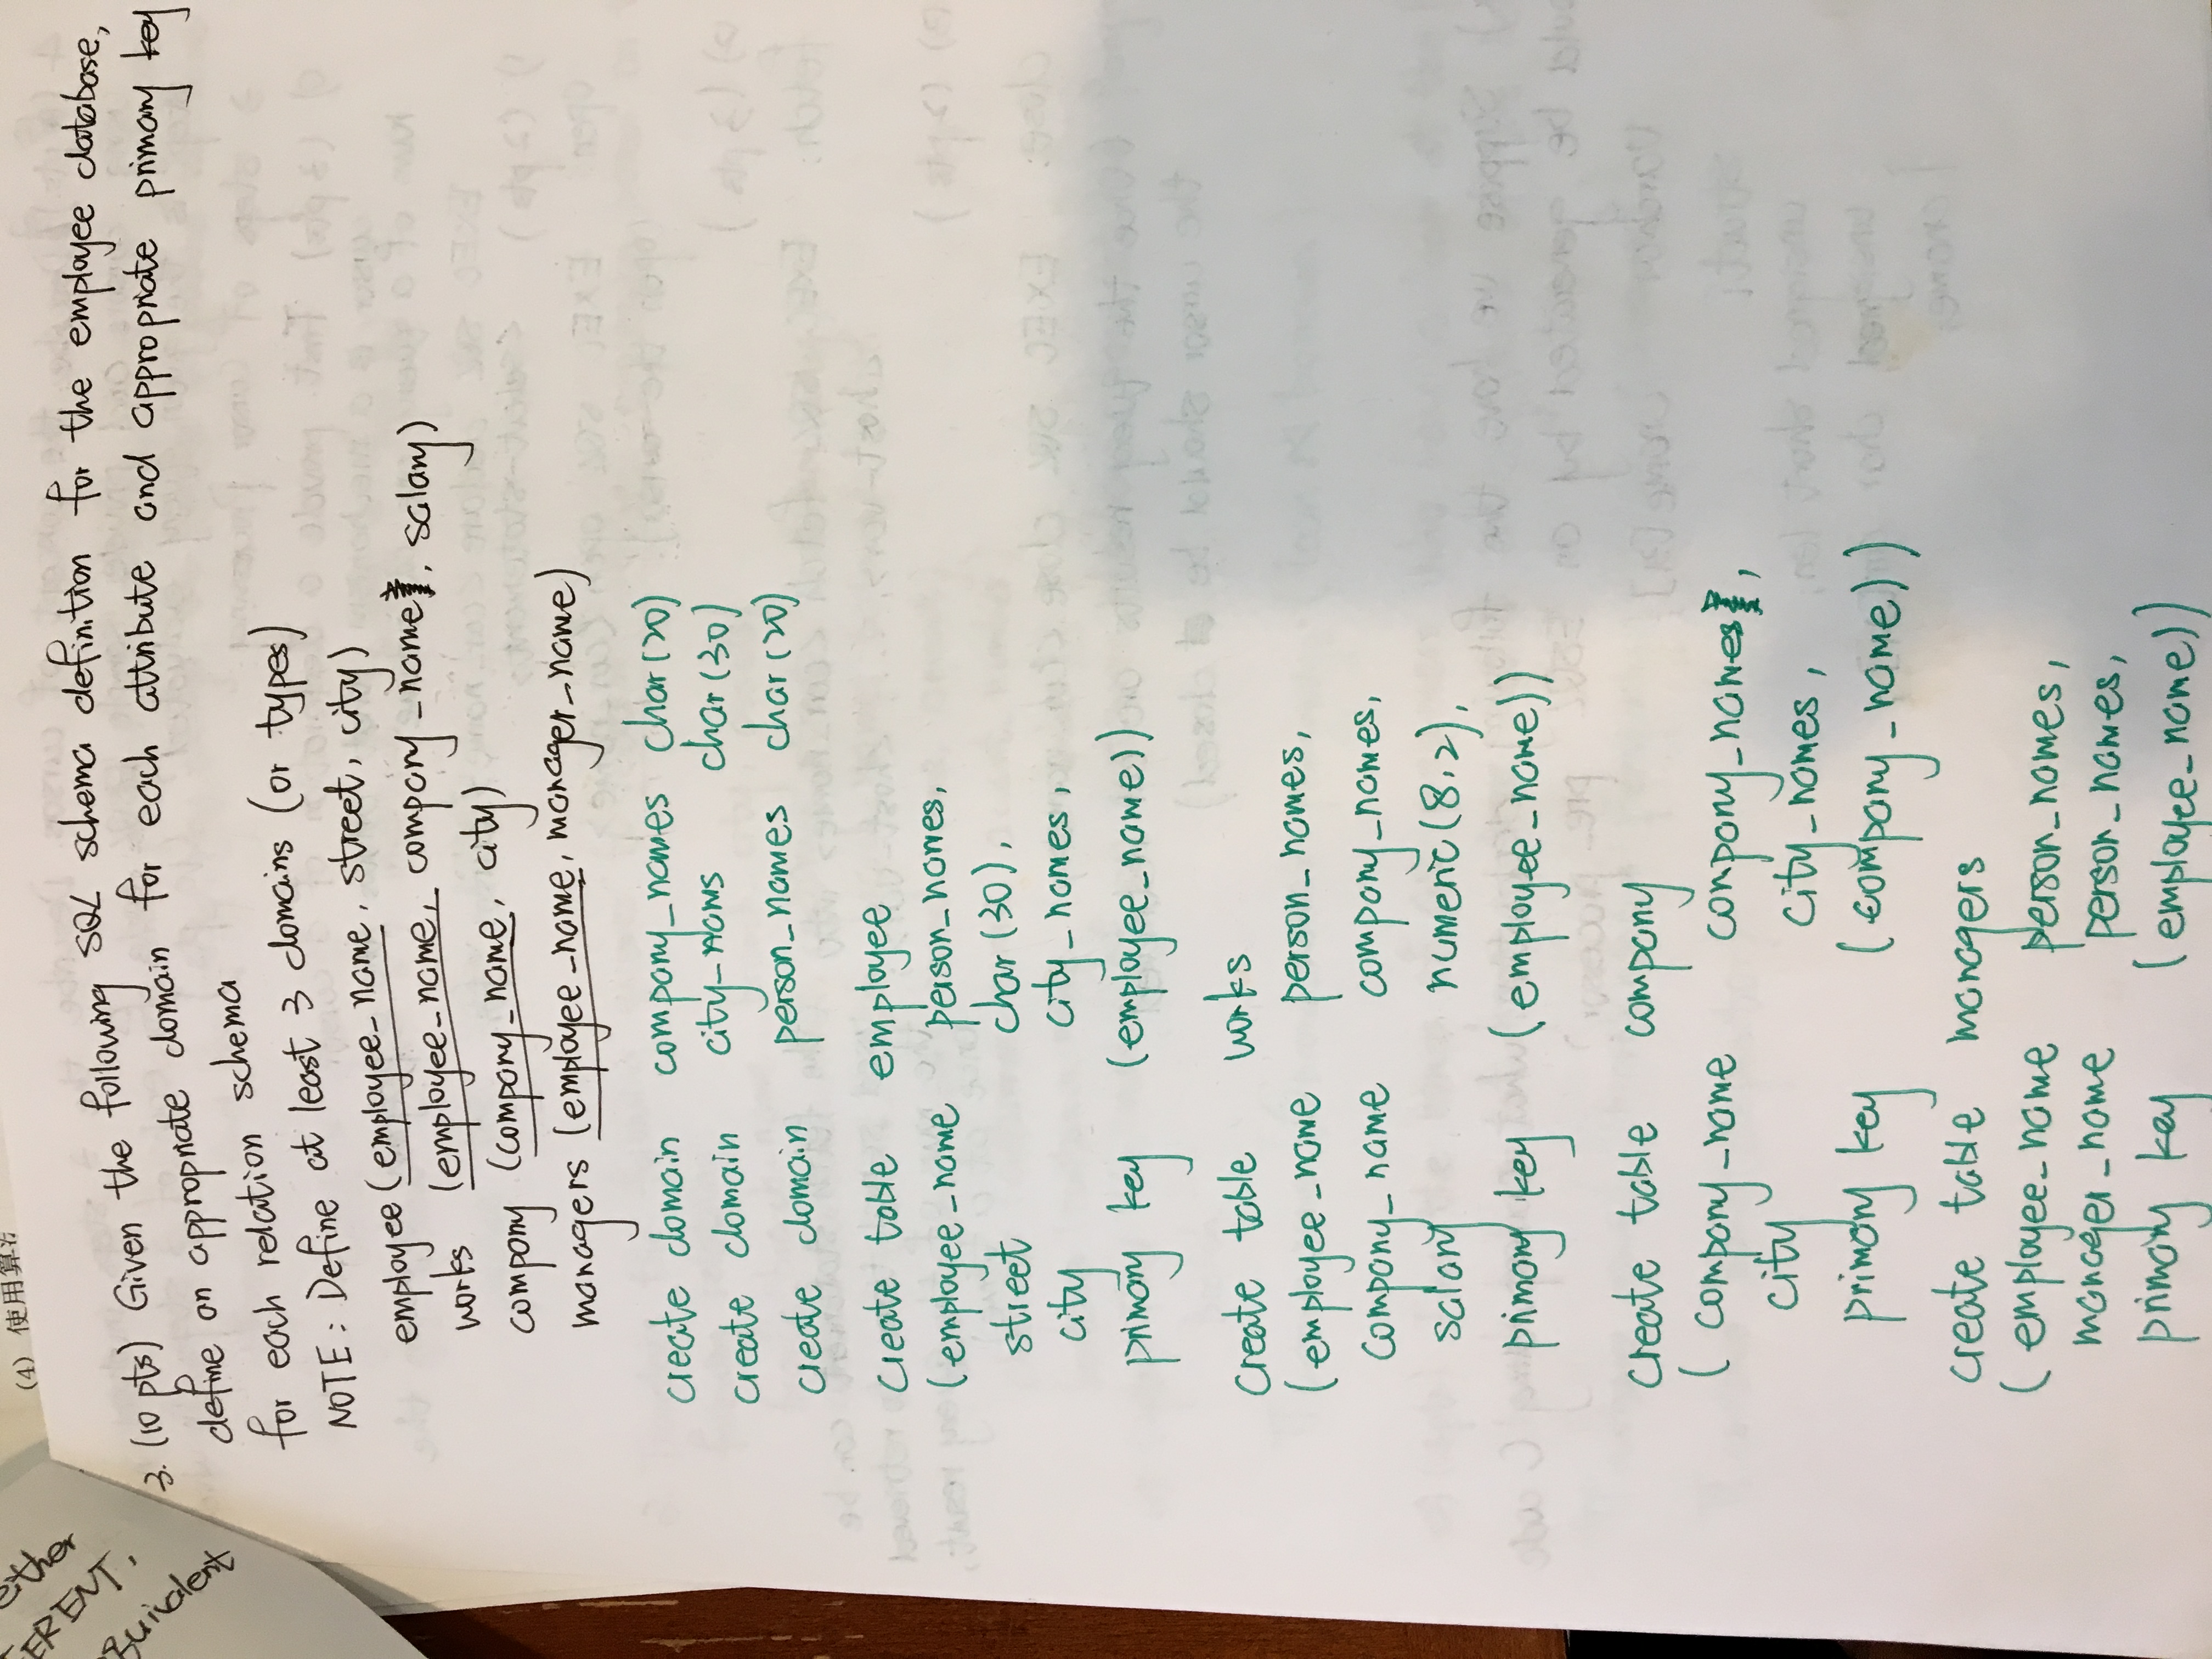 ether
ERENT,
equivalent
(4) 使用算
3. (10 pts) Given the following SQL schema definition for the employee database,
define an appropriate domain for each attribute and appropriate primary key
for each relation schema
NOTE: Define at least 3 domains (or types)
employee (employee_name, street, city)
works (employee_name, company_name, salary)
company (company_name, city)
managers (employee_name, manager_name)
create domain company_names char(20)
create domain city_nams char(30)
create domain person_names char(20)
create table employee
(employee_name person_names,
street char(30),
city city_names,
primary key (employee_name))
create table works
(employee_name person_names,
company_name company_names,
salary numeric(8,2),
primary key (employee_name))
create table company
(company_name company_names,
city city_names,
primary key (company_name))
create table managers
(employee_name person_names,
manager_name person_names,
primary key (employee_name))